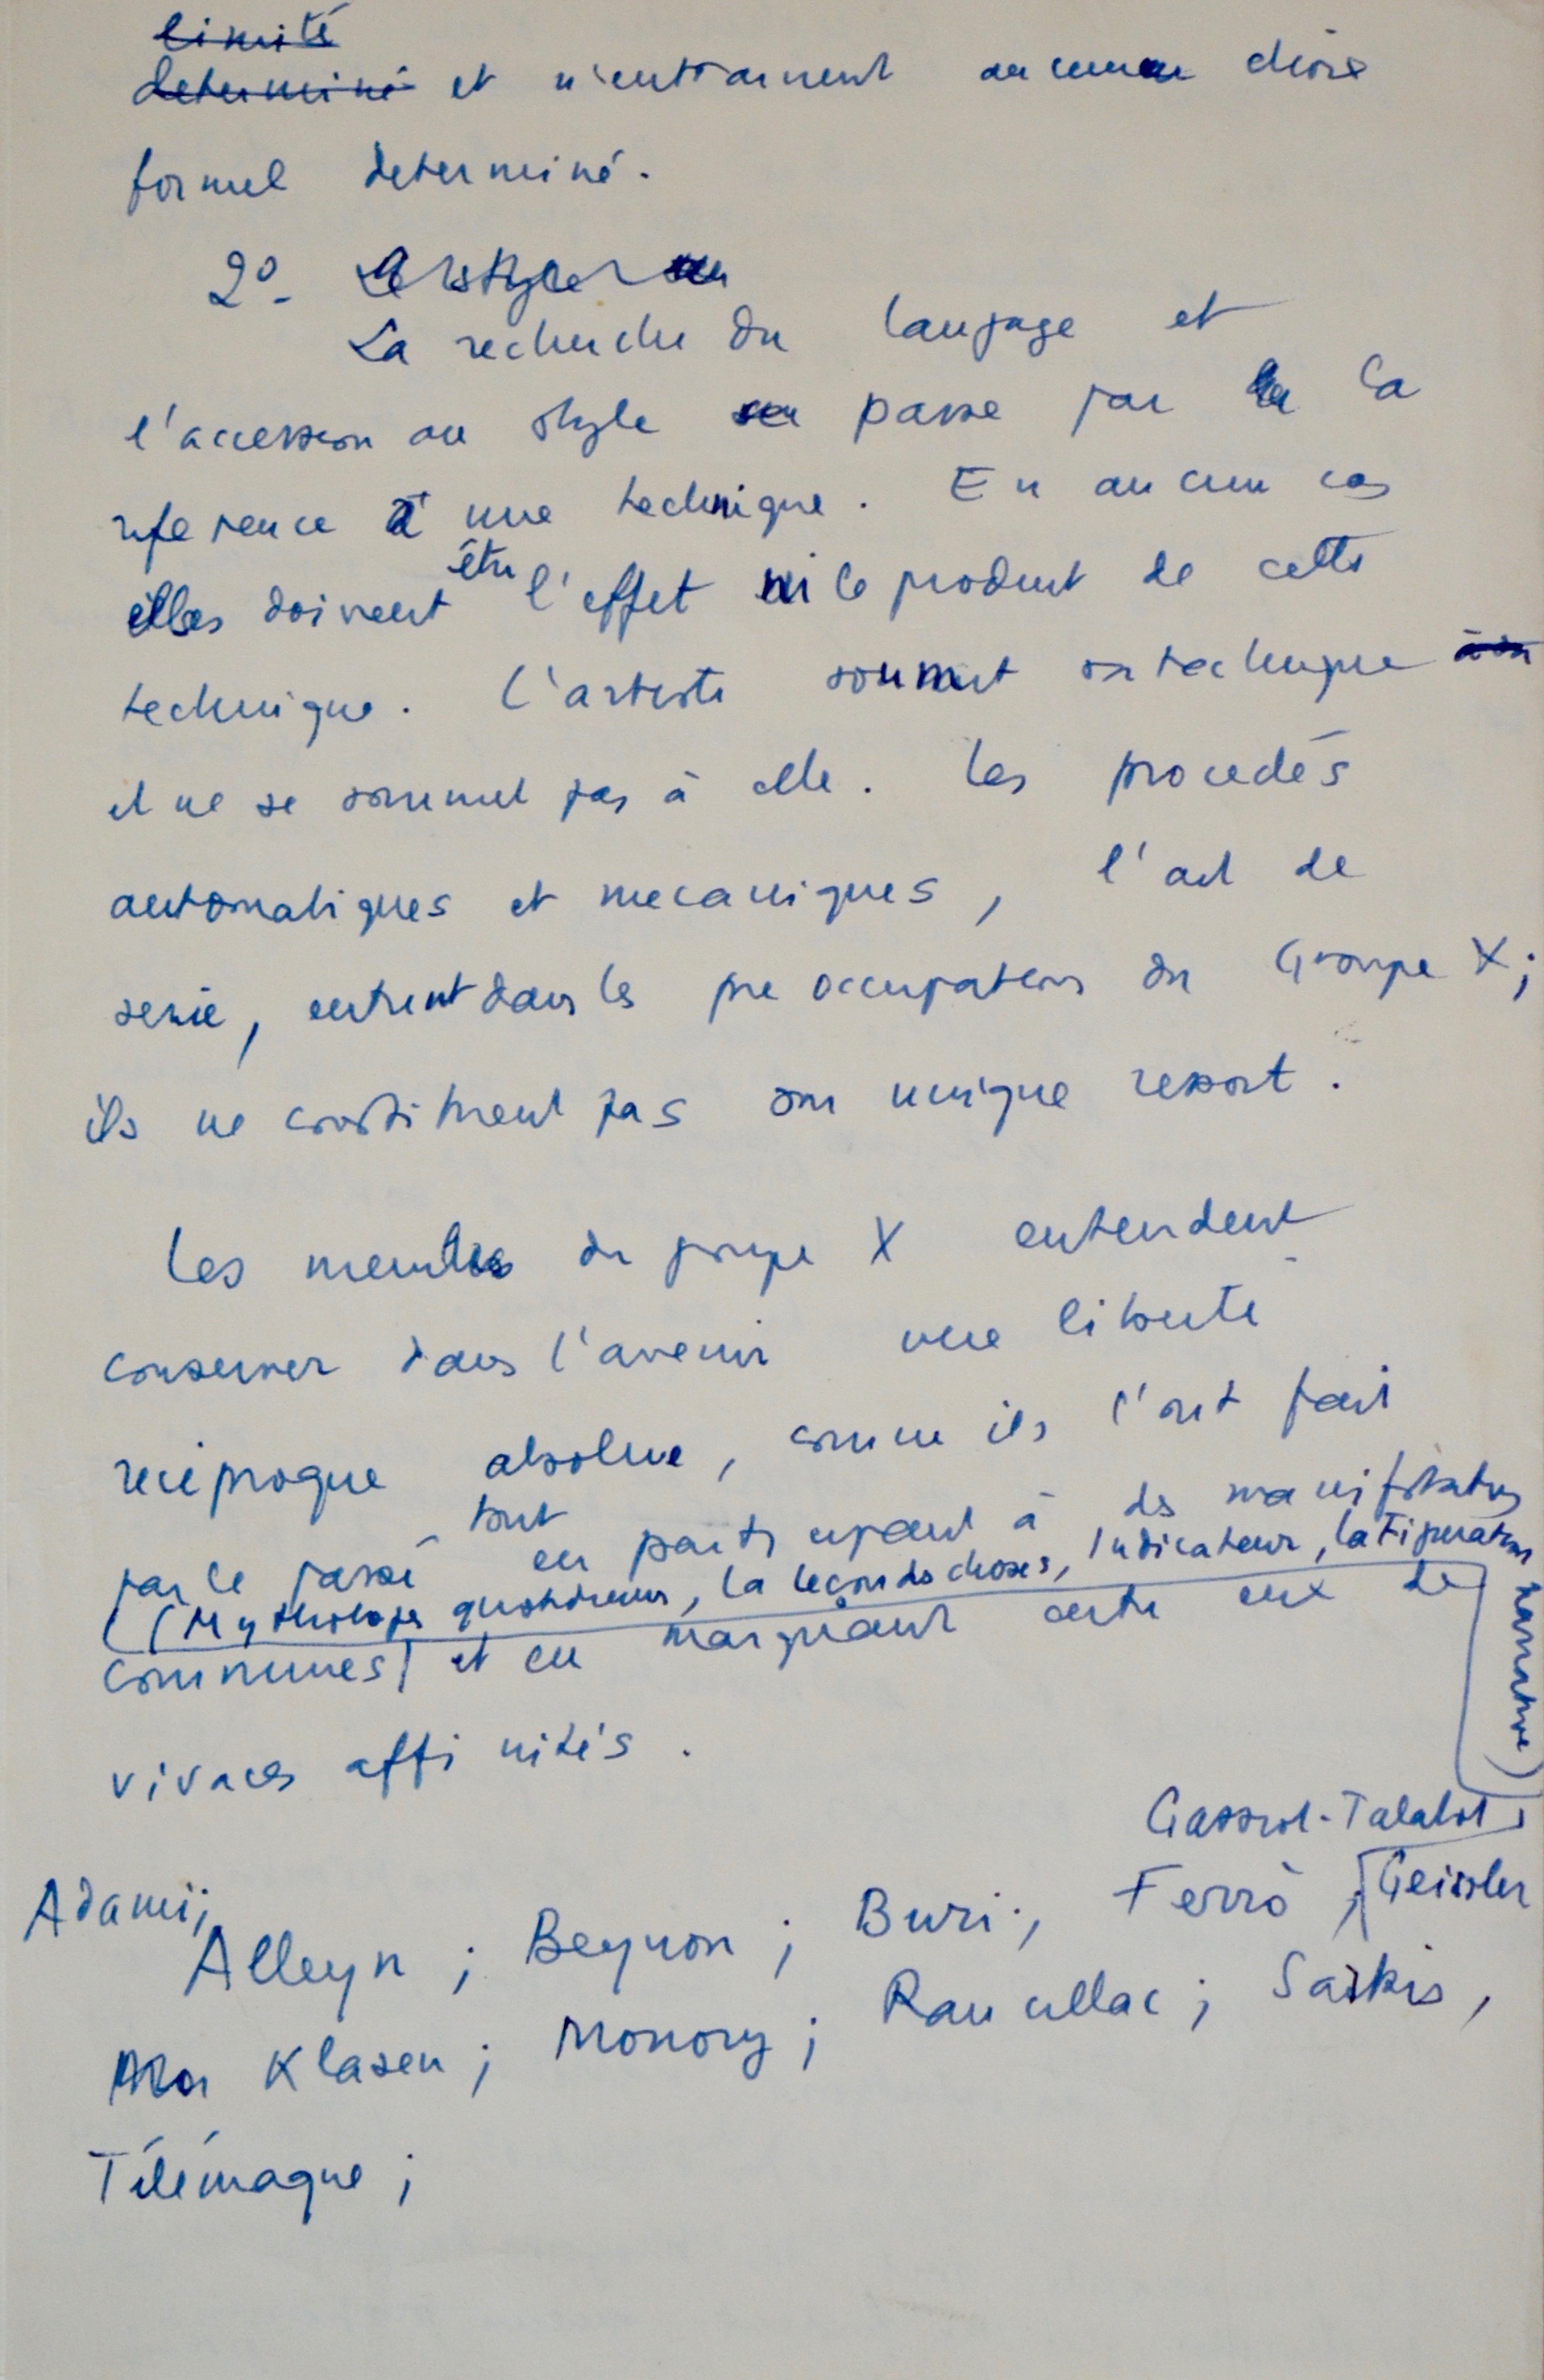 limité
determiné et n'entrainent aucun choix
formel determiné.
2º- Le style
La recherche du langage et
l'accession au style passe par la
reference à une technique. En aucun cas
elles doivent être l'effet ni le produit de cette
technique. L'artiste soumet sa technique à sa
il ne se soumet pas à elle. Les procedés
automatiques et mecaniques, l'art de
serie, entrent dans les preoccupations du Groupe X;
ils ne constituent pas son unique ressort.
Les membres du groupe X entendent
conserver dans l'avenir une liberté
reciproque absolue, comme ils l'ont fait
par le passé tout en participant à des manifestations
(Mythologies quotidiennes, la leçon des choses, Indicateur, la Figuration narrative)
communes et en marquant entre eux de
vivaces affinités.
Gassiot-Talabot
Adami; Alleyn; Beynon; Buri; Ferró; Geissler
Klasen; Monory; Rancillac; Sarkis,
Télémaque;